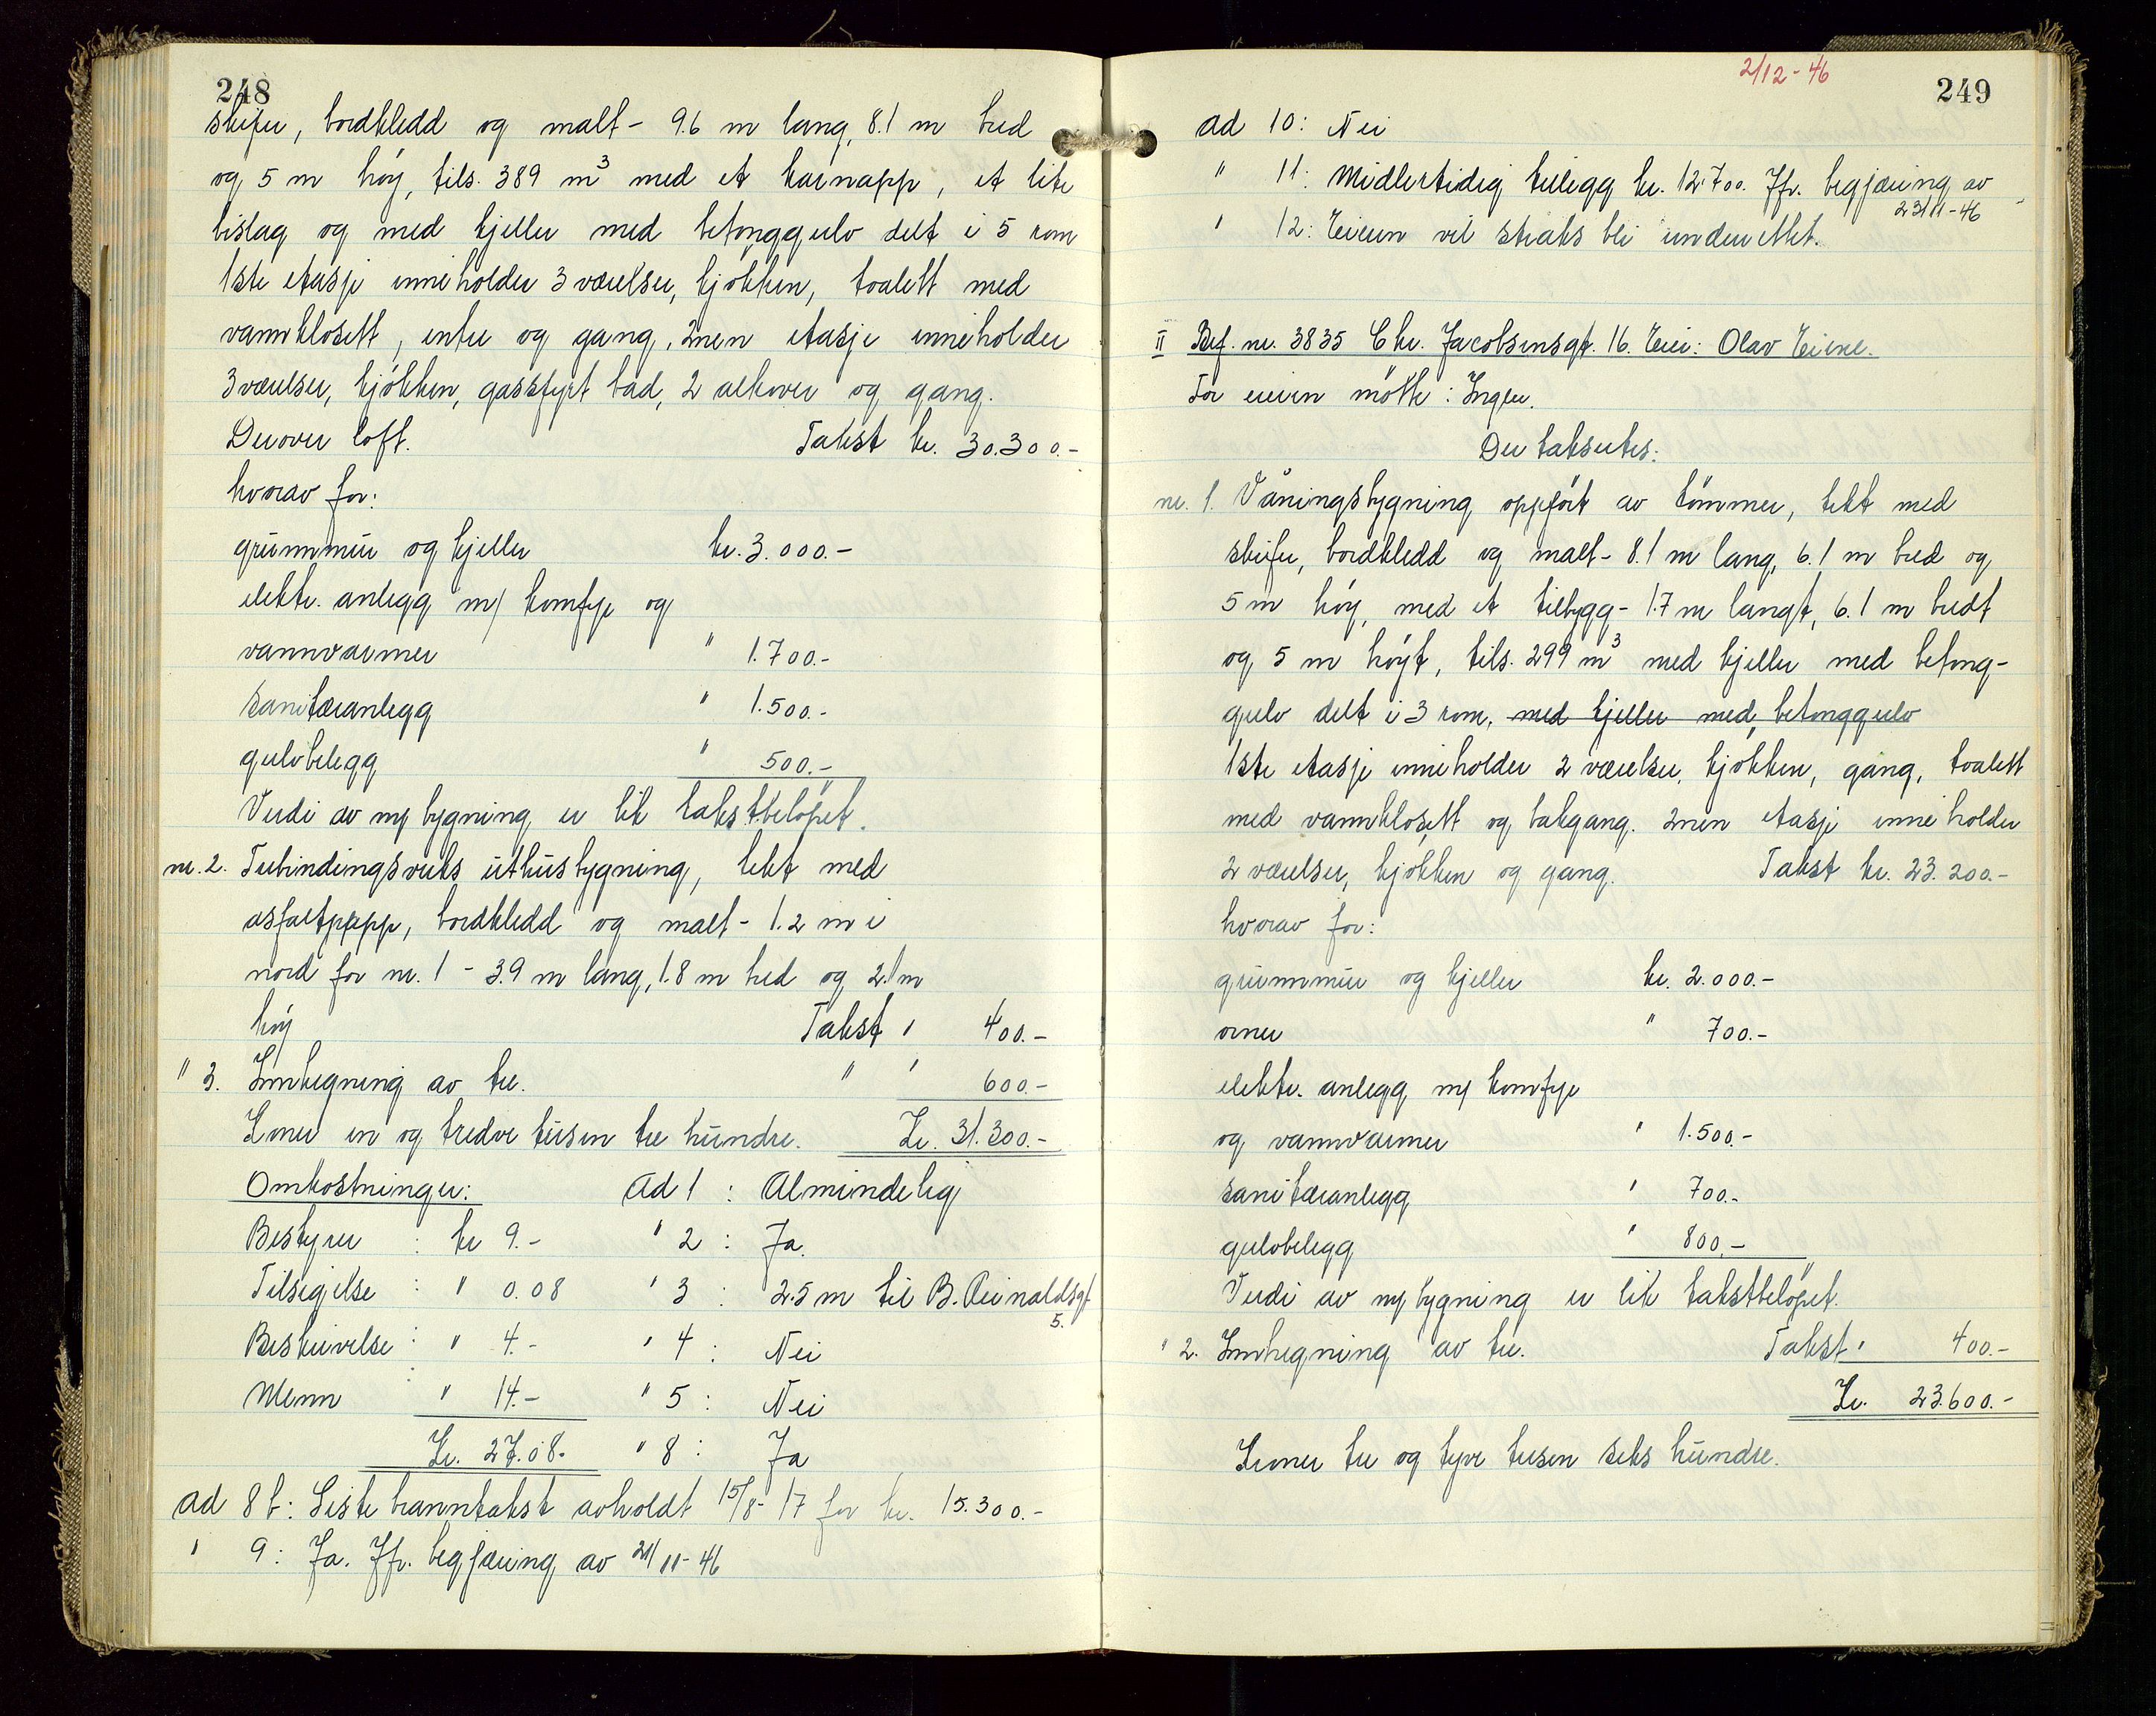 248
skifer, bordkledd og malt - 9.6 m lang, 8.1 m bred
og 5 m høy, tils. 389 m³ med et karnapp, et lite
bislag og med kjeller med betonggulv delt i 5 rom
1ste etasje inneholder 3 værelser, kjøkken, toalett med
vannklosett, entre og gang, 2nen etasje inneholder
3 værelser, kjøkken, gassfyrt bad, 2 alkover og gang.
Derover loft. Takst kr. 30.300.-
hvorav for:
grunnmur og kjeller kr. 3.000.-
elektr. anlegg m/ komfyr og
vannvarmer " 1.700.-
sanitæranlegg " 1.500.-
gulvbelegg " 500.-
Verdi av ny bygning er lik takstbeløpet.
nr. 2. Tubindingsverks uthusbygning, tekt med
asfaltpapp, bordkledd og malt - 1.2 m i
nord for nr. 1 - 3.9 m lang, 1.8 m bred og 2.1 m
høy Takst " 400.-
" 3. Innhegning av tre. " " 600.-
Kroner en og tredve tusen tre hundre. Kr. 31.300.-
Omkostninger: Ad 1 : Almindelig
Bestyrer : kr 9.- " 2 : Ja.
Tilsigelse : " 0.08 " 3 : 2.5 m til B. Reinaldsgt
5.
Beskrivelse : " 4.- " 4 : Nei
Menn : " 14.- " 5 : Nei
Kr. 27.08.- " 8 : Ja
ad 8 b: Siste branntakst avholdt 15/8-17 for kr. 15.300.-
" 9: Ja. Jfr. begjæring av 21/11-46
2/12-46
249
ad 10: Nei
" 11: Midlertidig tillegg kr. 12.700. Jfr. begjæring av
23/11-46
" 12: Eieren vil straks bli underettet.
II Brf. nr. 3835 Chr. Jacobsensgt. 16. Eier: Olav Eiene.
For eieren møtte: Ingen.
Der takseres:
nr. 1. Våningsbygning oppført av tømmer, tekt med
skifer, bordkledd og malt - 8.1 m lang, 6.1 m bred og
5 m høy, med et tilbygg - 1.7 m langt, 6.1 m bredt
og 5 m høyt, tils. 299 m³ med kjeller med betong-
gulv delt i 3 rom, med kjeller med betonggulv
1ste etasje inneholder 2 værelser, kjøkken, gang, toalett
med vannklosett og bakgang. 2nen etasje inneholder
2 værelser, kjøkken og gang. Takst kr. 23.200.-
hvorav for:
grunnmur og kjeller kr. 2.000.-
ovner " 700.-
elektr. anlegg m/ komfyr
og vannvarmer " 1.500.-
sanitæranlegg " 700.-
gulvbelegg " 800.-
Verdi av ny bygning er lik takstbeløpet.
" 2. Innhegning av tre. Takst " 400.-
Kr. 23.600.-
Kroner tre og tyve tusen seks hundre.